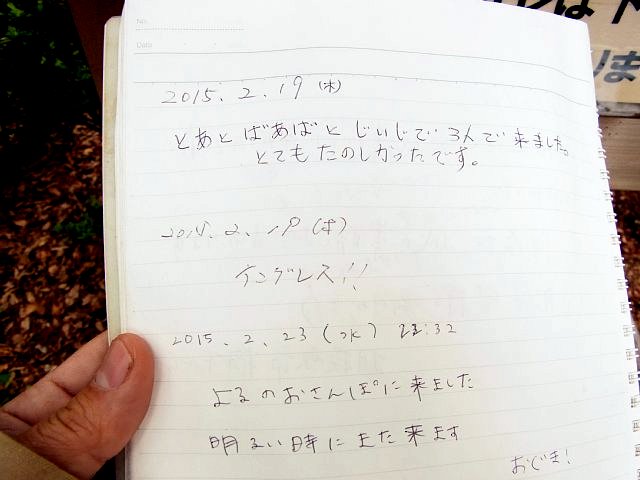 No.
Date
2015. 2. 19 (木)
とあと ばあばと じいじで 3人で 来ました。
とてもたのしかったです。
2015. 2. 19 (木)
イングレス!!
2015. 2. 23 (水) 22:32
よるのおさんぽに来ました
明るい時にまた来ます
おぐま!